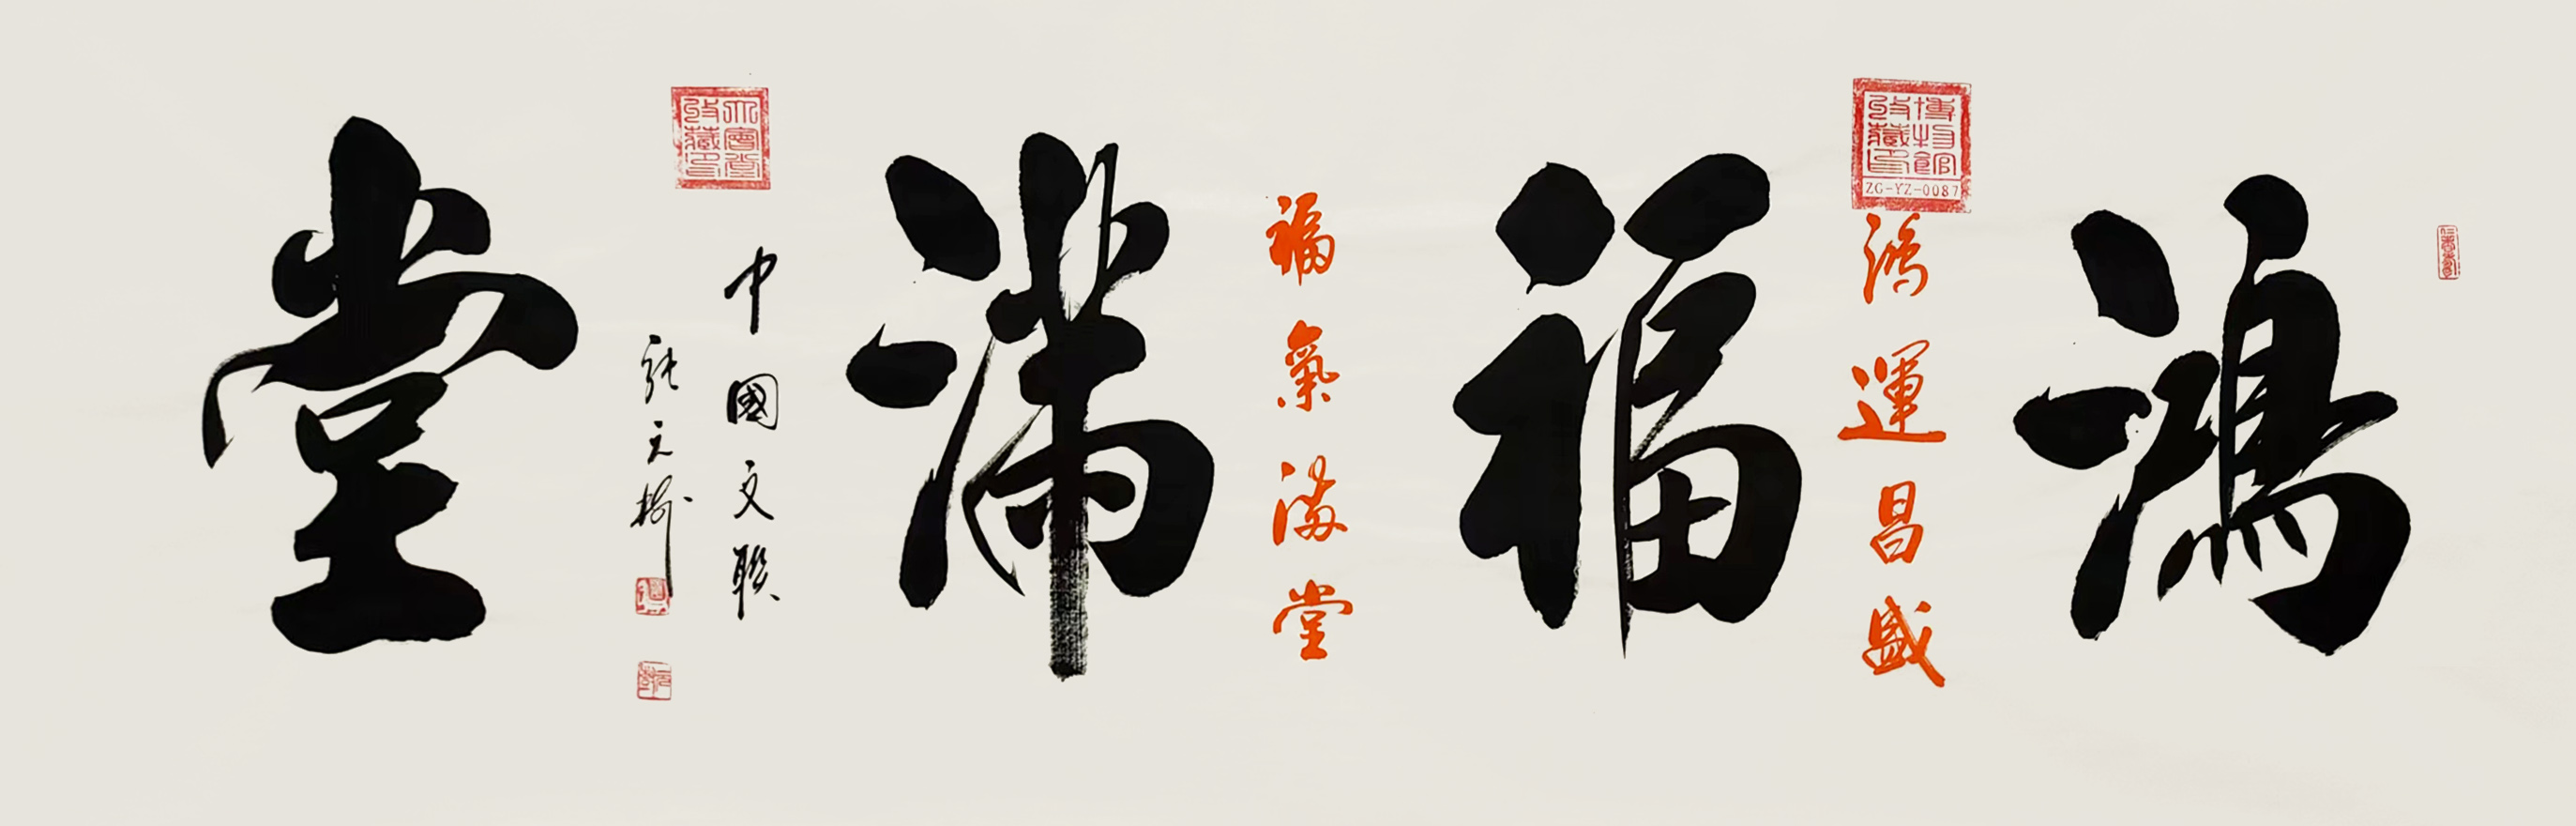 鴻
博物館收藏印
ZG-YZ-0087
鴻運昌盛
福
福氣滿堂
滿
大會堂收藏印
中國文聯
張之
堂